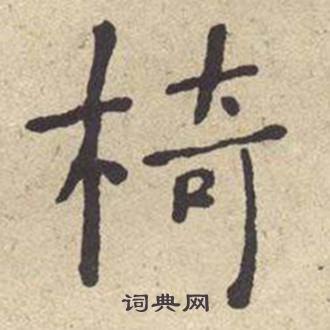 椅
词典网